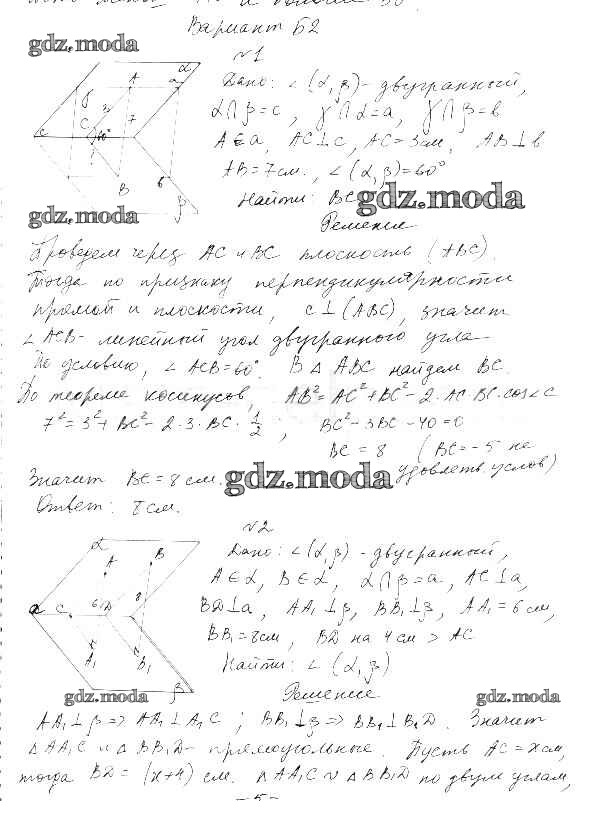 Вариант Б2
gdz.moda
№1
Дано: ∠(α, β) - двугранный,
α∩β=c, γ∩α=a, γ∩β=b
A∈a, AC⊥c, AC=3см, AB⊥b
AB=7см, ∠(α, β)=60°
Найти: BC
gdz.moda
gdz.moda
Решение
Проведем через AC и BC плоскость (ABC).
Тогда по признаку перпендикулярности
прямой и плоскости, c⊥(ABC), значит
∠ACB - линейный угол двугранного угла
По условию, ∠ACB=60°. В △ABC найдем BC.
По теореме косинусов, AB²=AC²+BC²-2·AC·BC·cos∠C
7²=3²+BC²-2·3·BC·1/2, BC²-3BC-40=0
BC=8 (BC=-5 не
удовлеть услов)
Значит BC=8см.
gdz.moda
Ответ: 8см.
№2
Дано: ∠(α, β) - двугранный,
A∈α, B∈α, α∩β=a, AC⊥a,
BD⊥a, AA₁⊥β, BB₁⊥β, AA₁=6см,
BB₁=8см, BD на 4см > AC
Найти: ∠(α, β)
gdz.moda
Решение
gdz.moda
AA₁⊥β => AA₁⊥A₁C; BB₁⊥β => BB₁⊥B₁D. Значит
△AA₁C и △BB₁D - прямоугольные. Пусть AC=xсм,
тогда BD=(x+4) см. △AA₁C ∾ △BB₁D по двум углам,
- 5 -